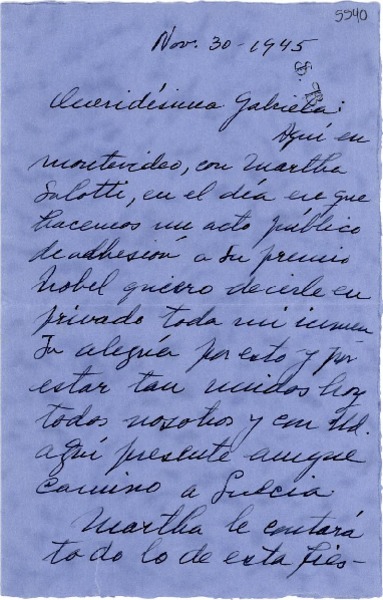 5540
Nov. 30-1945
Queridésima Gabriela:
Aquí en
montevideo, con Martha
Salotti, en el día en que
hacemos un acto público
de adhesión a Su premio
Nobel quiero decirle en
privado toda mi inmen
sa alegría por esto y por
estar tan unidos hoy
todos nosotros y con Ud.
aquí presente aunque
camino a Suecia
Martha le contará
todo lo de esta fies-